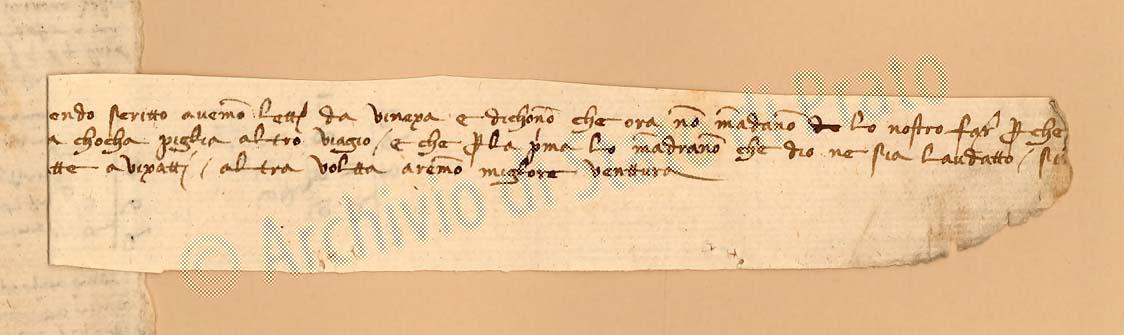 endo scritto avemo lett da vinexa e dichono che ora no madano lo nostro far p che
a chocha piglia altro viagio / e che p la pma lo madrano che dio ne sia laudatto / si
tte avixatti / altra voltta aremo migliore venttura
© Archivio di Stato di Prato